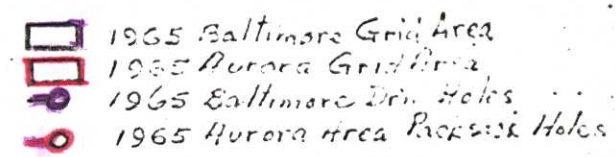 1965 Baltimore Grid Area
1965 Aurora Grid Area
1965 Baltimore Holes
1965 Aurora Area Packsack Holes